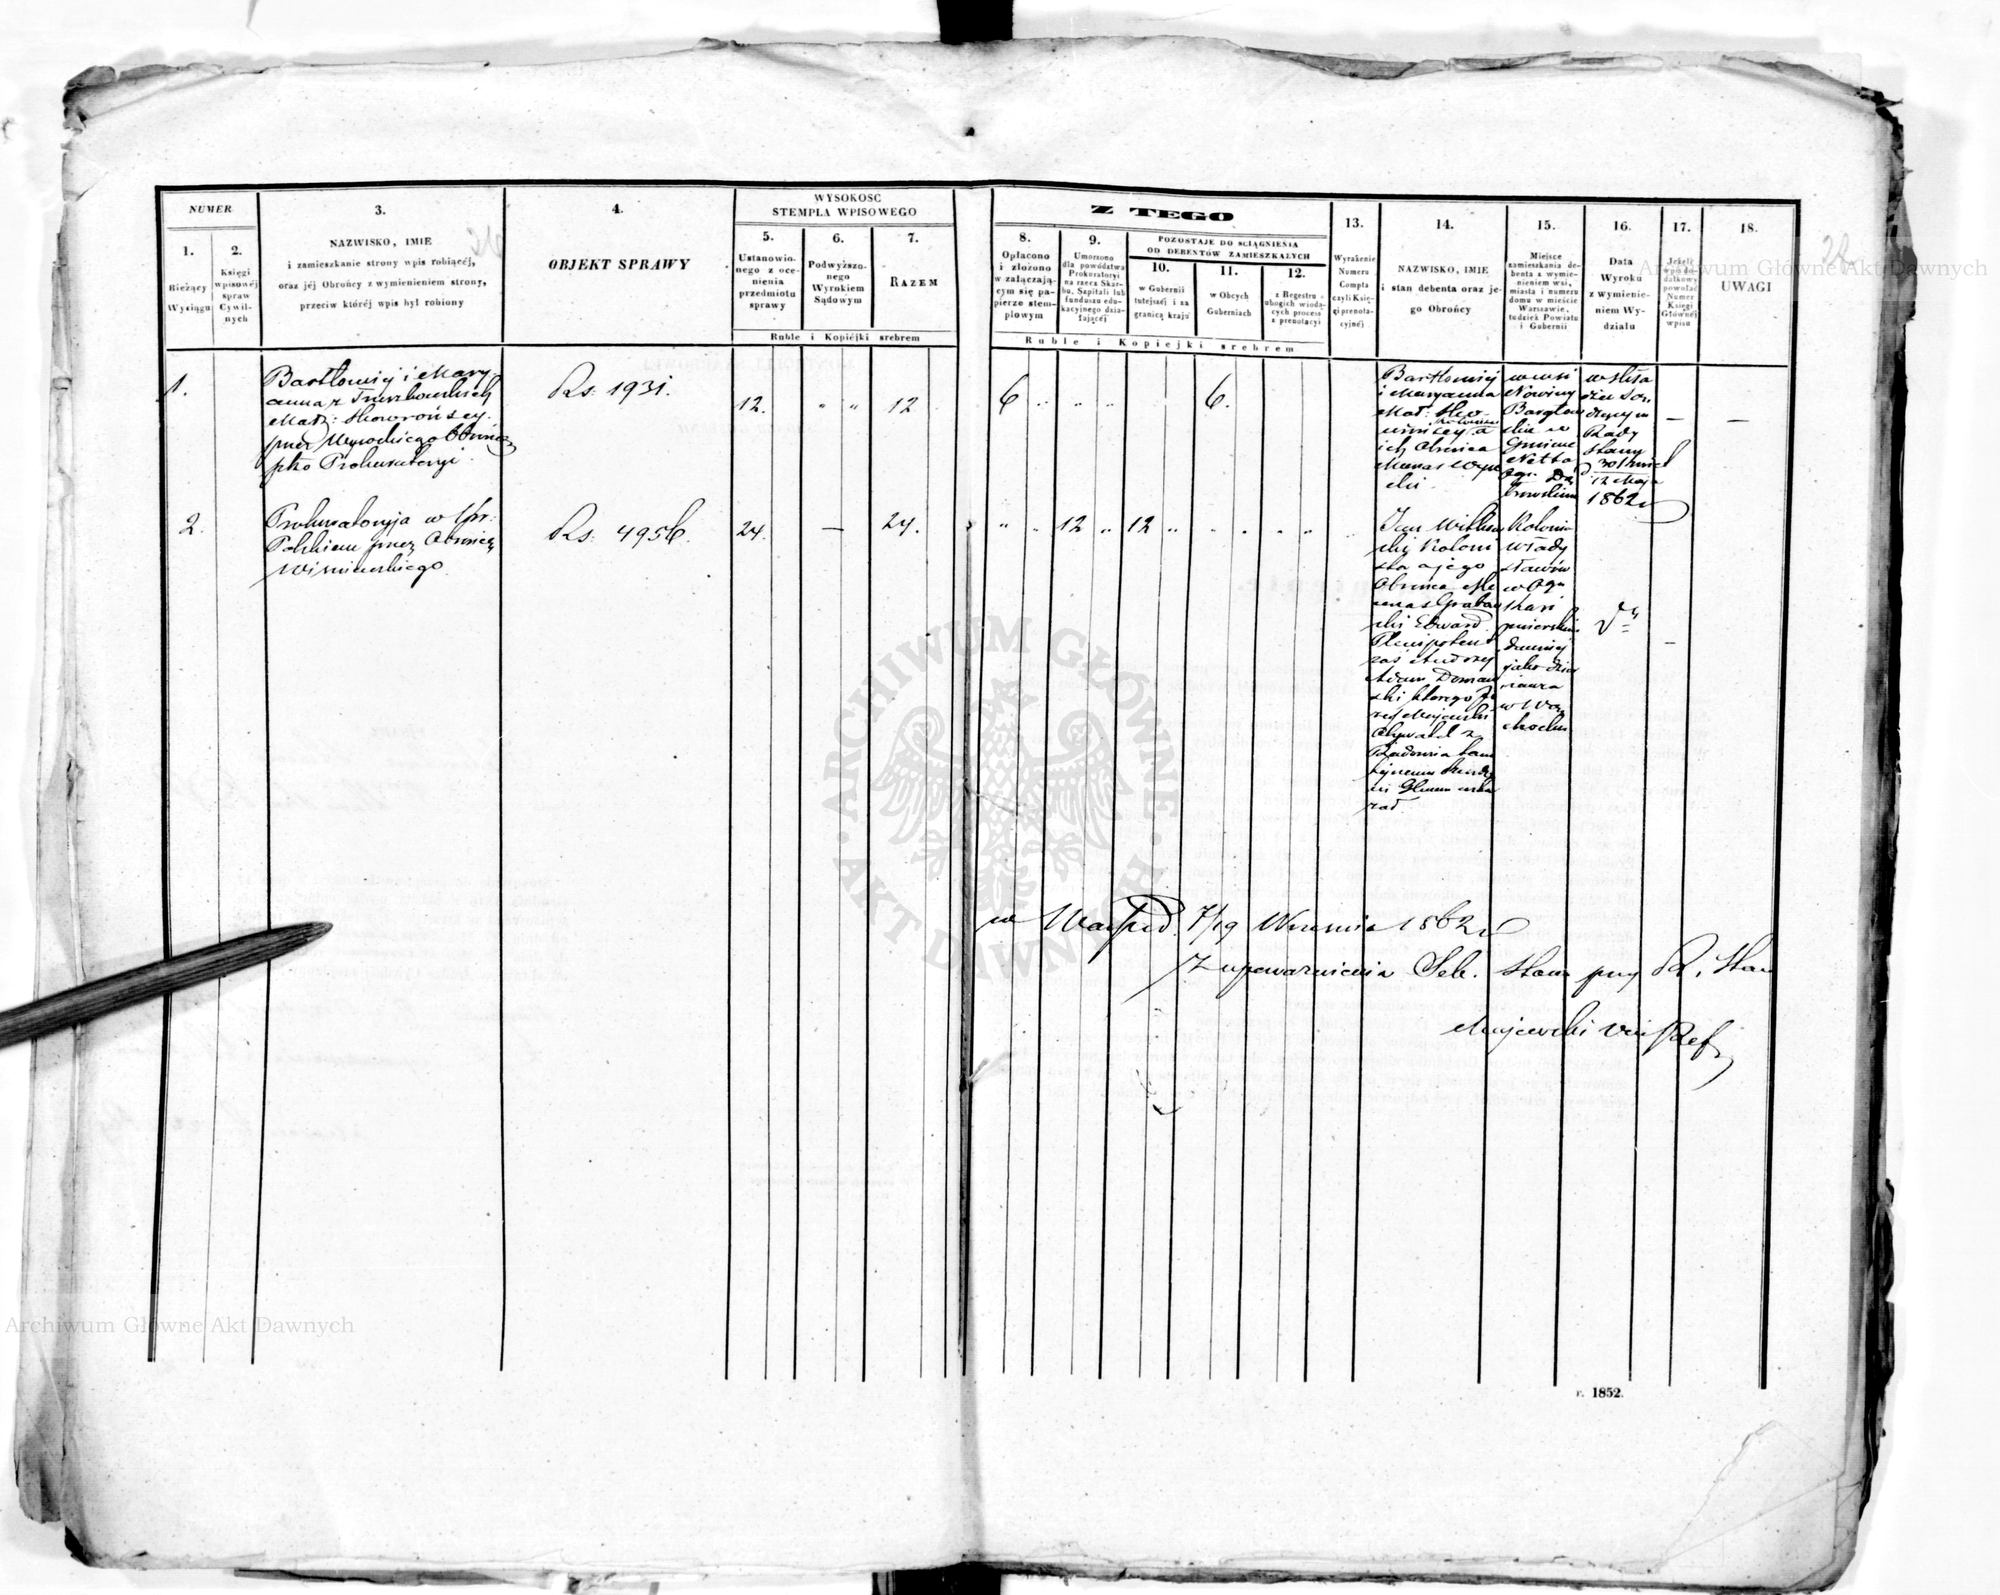 NUMER
1.
Bieżący
Wyciągu
2.
Księgi
wpisowéj
spraw
Cywil-
nych
3.
NAZWISKO, IMIE
i zamieszkanie strony wpis robiącéj,
oraz jéj Obrońcy z wymienieniem strony,
przeciw któréj wpis był robiony
4.
OBJEKT SPRAWY
WYSOKOSC
STEMPLA WPISOWEGO
5.
Ustanowio-
nego z oce-
nienia
przedmiotu
sprawy
6.
Podwyższo-
nego
Wyrokiem
Sądowym
7.
RAZEM
Ruble i Kopiéjki srebrem
Z TEGO
8.
Opłacono
i złożono
w załączają-
cym się pa-
pierze stem-
plowym
9.
Umorzono
dla powództwa
Prokuratoryi
na rzecz Skar-
bu, Szpitali lub
funduszu edu-
kacyjnego dzia-
łającéj
POZOSTAJE DO SCIĄGNIENIA
OD DEBENTÓW ZAMIESZKAŁYCH
10.
w Gubernii
tutejszéj i za
granicą kraju
11.
w Obcych
Guberniach
12.
z Regestru
ubogich wiodą-
cych process
z prenotacyi
Ruble i Kopiejki srebrem
13.
Wyrażenie
Numeru
Compta
czyli Księ-
gi prenota-
cyjnéj
14.
NAZWISKO, IMIE
i stan debenta oraz je-
go Obrońcy
15.
Miejsce
zamieszkania de-
benta z wymie-
nieniem wsi,
miasta i numeru
domu w mieście
Warszawie,
tudzież Powiatu
i Gubernii
16.
Data
Wyroku
z wymienie-
niem Wy-
działu
17.
Jeżeli
wpis do-
datkowy
powołać
Numer
Księgi
Głównéj
wpisu
18.
UWAGI
1.
Bartłomiéj i Mary-
anna z
Małż: Skowrońscy
przez Wysockiego Obrońcę
pko Prokuratoryi
Rs: 1931.
12. " " 12
6 " " " 6.
Bartłomiéj
i Maryanna
Mał: Sko-
wrońscy a
ich Obrońca
Mecenas Wyso-
cki
we wsi
Nowiny
Bargłow-
skie w
Gminie
Netta
Ogu
w
dzen Są-
dzącym
Rady
Stanu
d 30 Kwiet
12 Maja
1862 r
— —
2.
Prokuratoryja w Kr:
Polskiem przez Obrońcę
Wiśniewskiego
Rs: 4956.
24. — 24.
" " 12 " 12 " " " " "
Jan
Koloni-
sta a jego
Obrońca Me-
cenas Grabow-
ski Edward
Plenipotent
zaś
Adam Doman-
ski którego
Majewski
Adwokat z
Kolonia
Włady-
sławów
w Ogu
dawniéj
jako
w
dto
—
w Warsza d. 7/19 Września 1862 r
Z upoważnienia Sek. Stanu przy R. Stan
Majewski Refr
r. 1852.
ARCHIWUM GŁÓWNE AKT DAWNYCH
Archiwum Główne Akt Dawnych
Archiwum Główne Akt Dawnych